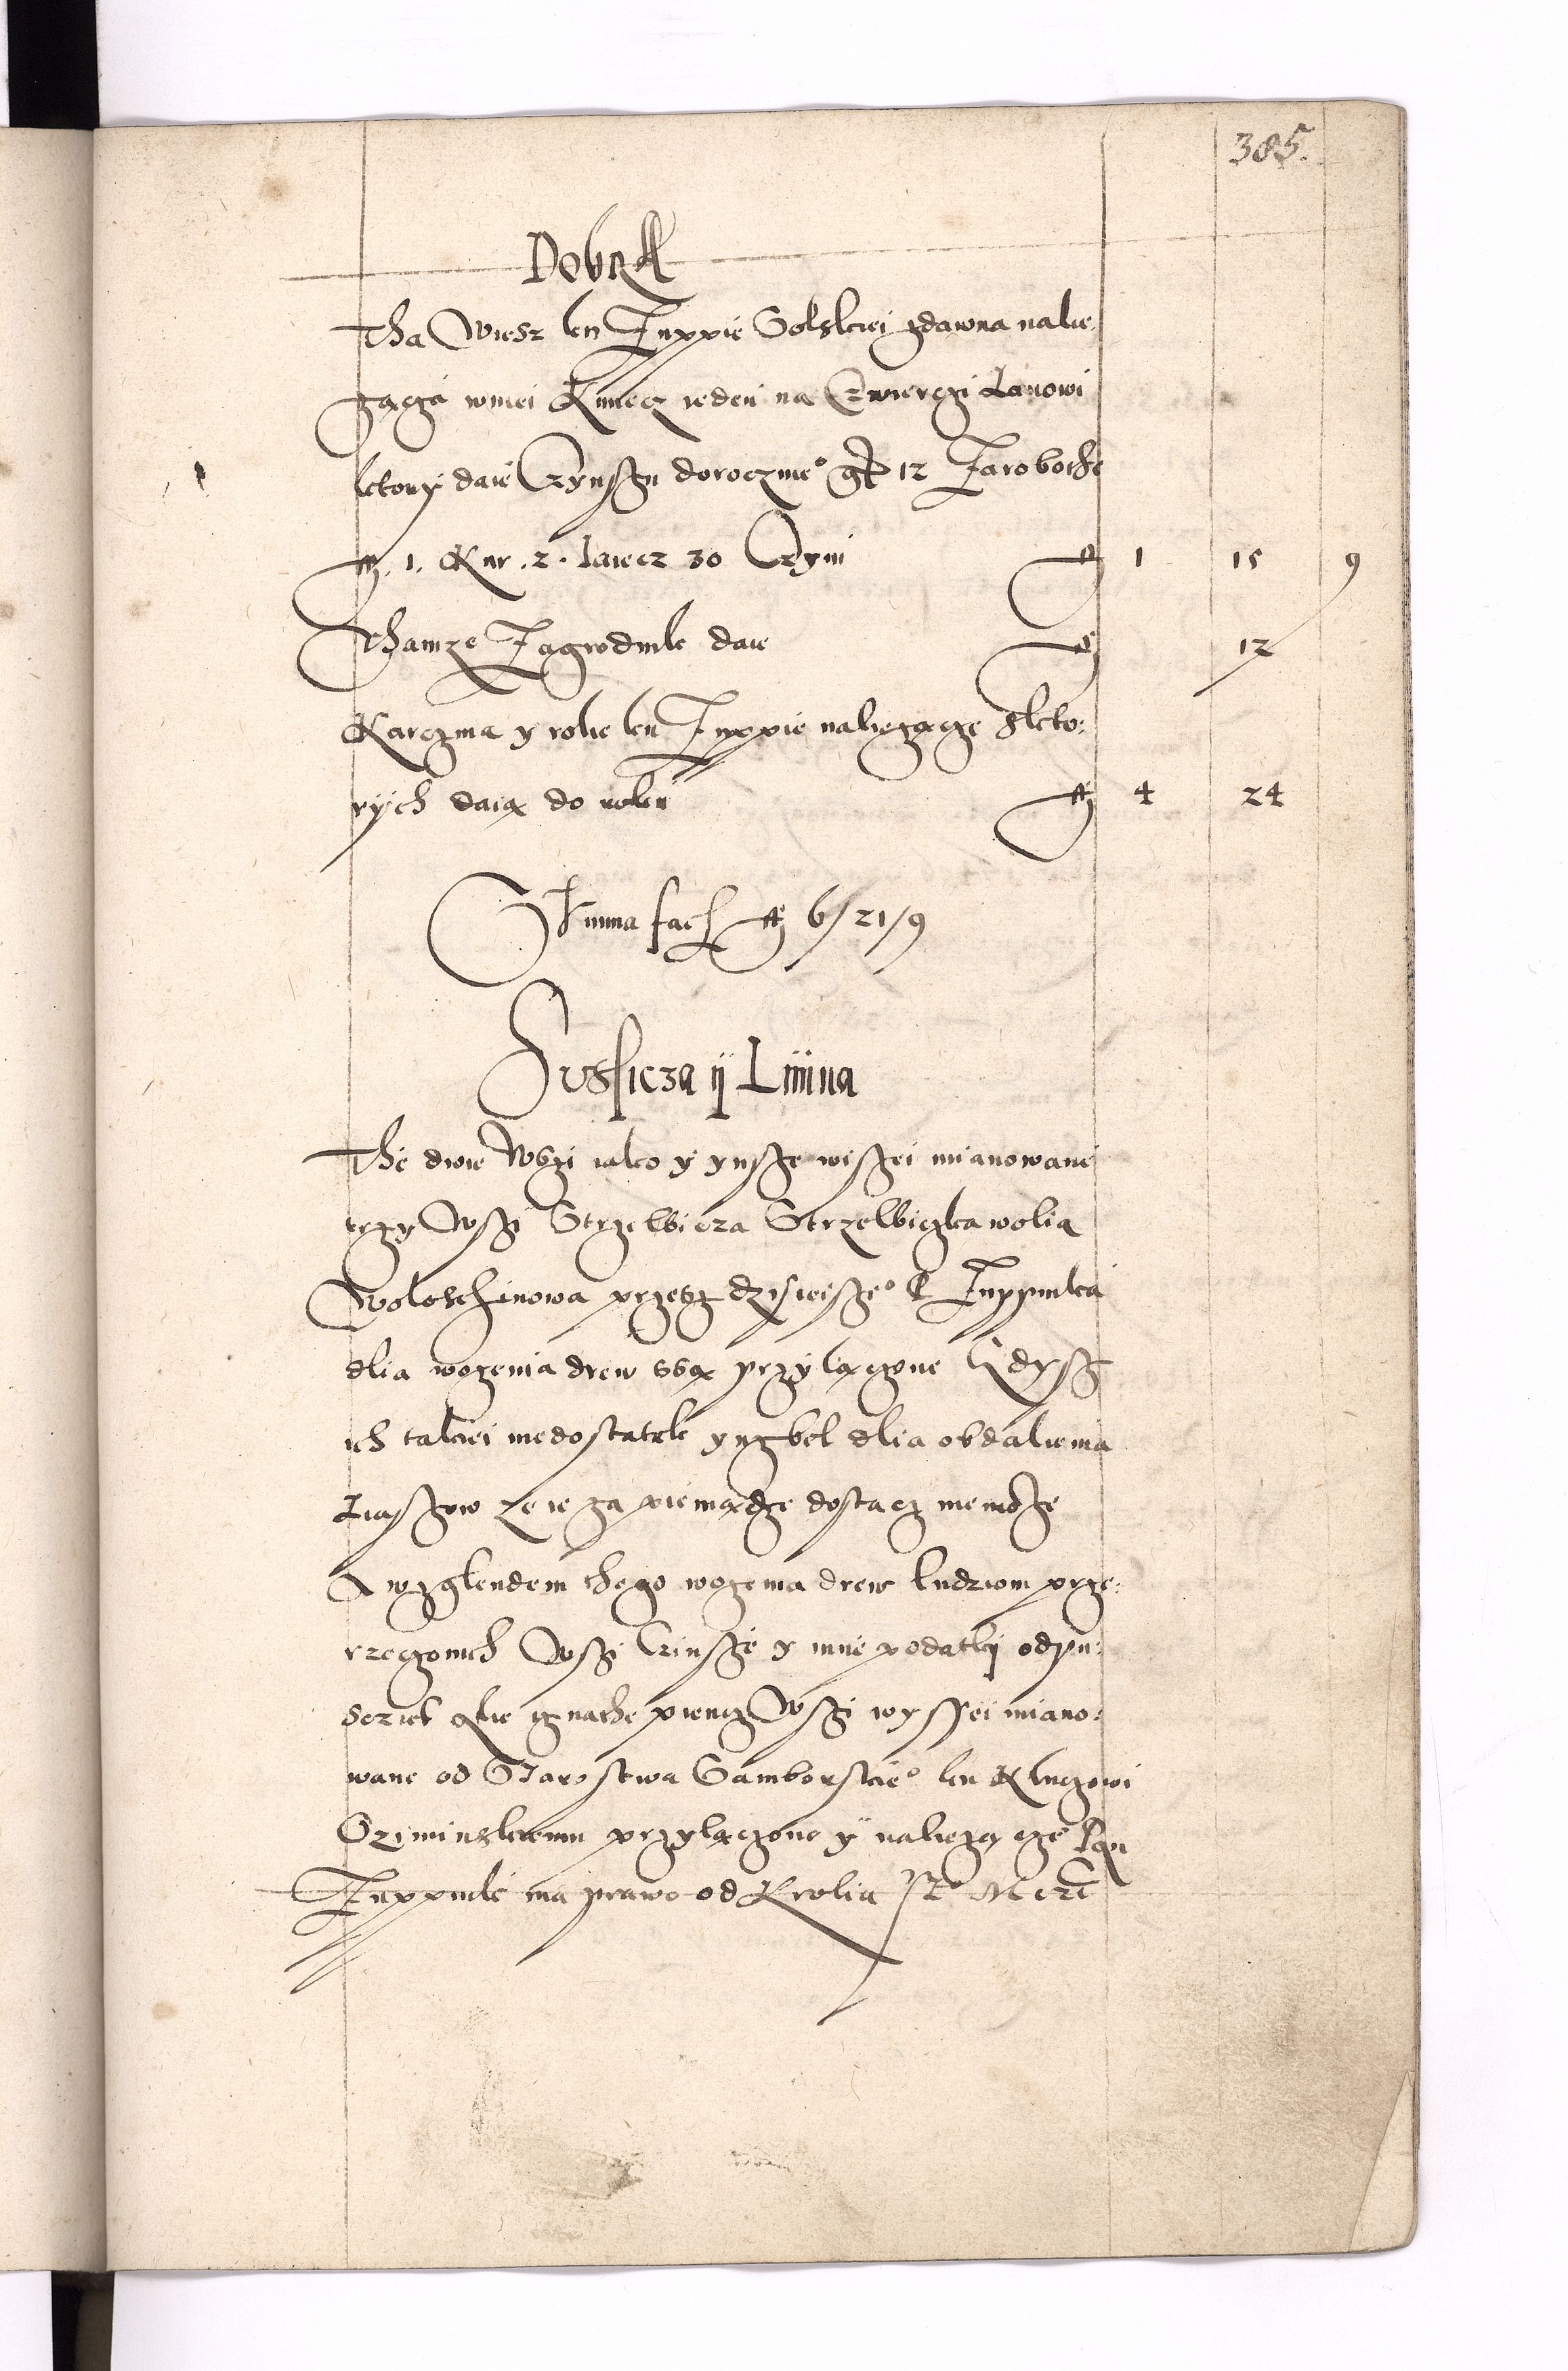 385.
Dobra
Tha Wiesz ku Zuppie Solskiei zdawna nalie
zącza wniei Kmiecz ieden na Czwierczi Lanowi
ktory daie Czynszu doroczne° gr 12 Zarobothe
fl. 1. Kur. 2. Jaiecz 30 Czyni fl 1 15 9
Thamze Zagrodnik daie fl 12
Karczma y rolie ku Zuppie naliezącze skto:
rych daią do roku fl 4 24
Summa facit fl 6/21/9
Sussicza ÿ Linina
The dwie Wszi iako y ynsze wiszei mianowane
trzy Wszi Strzelbicza Strzelbiczka wolia
Woloschinowa przesz dzisieisze° P Zuppnika
dlia wozenia drew ssą przylączone Gdysz
ich takiei niedostatek yuzbel dlia oddalienia
Liassow ze ie za pieniądze dostacz niemosze
A wzglendem thego wozenia drew ludziom prze:
rzeczonich Wszi Czinsze y inne podatkj odpu:
sczieł Alie iz nathe piencz Wszi wysszei miano:
wane od Starostwa Samborskie° ku Kluczowi
Oziminskiemu przylączono ÿ naliezącze Pan
Zuppnik ma prawo od Krolia J° Mczi